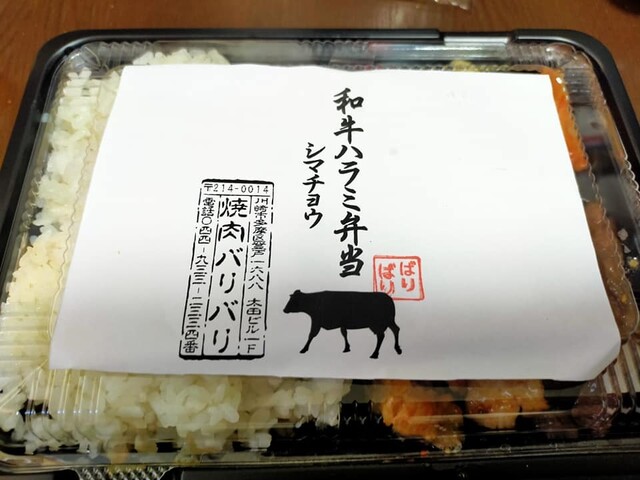 和牛ハラミ弁当
シマチョウ
ばり
ばり
〒214-0014
川崎市多摩区登戸一六八八 太田ビル一F
焼肉バリバリ
電話〇四四-九三三-二三三四番